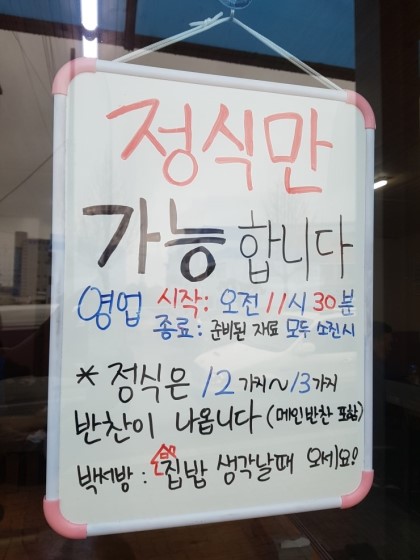 정식만
가능합니다
영업 시작: 오전 11시 30분
종료: 준비된 자료 모두 소진시
* 정식은 12가지~13가지
반찬이 나옵니다 (메인반찬 포함)
백서방: 집밥 생각날때 오세요!